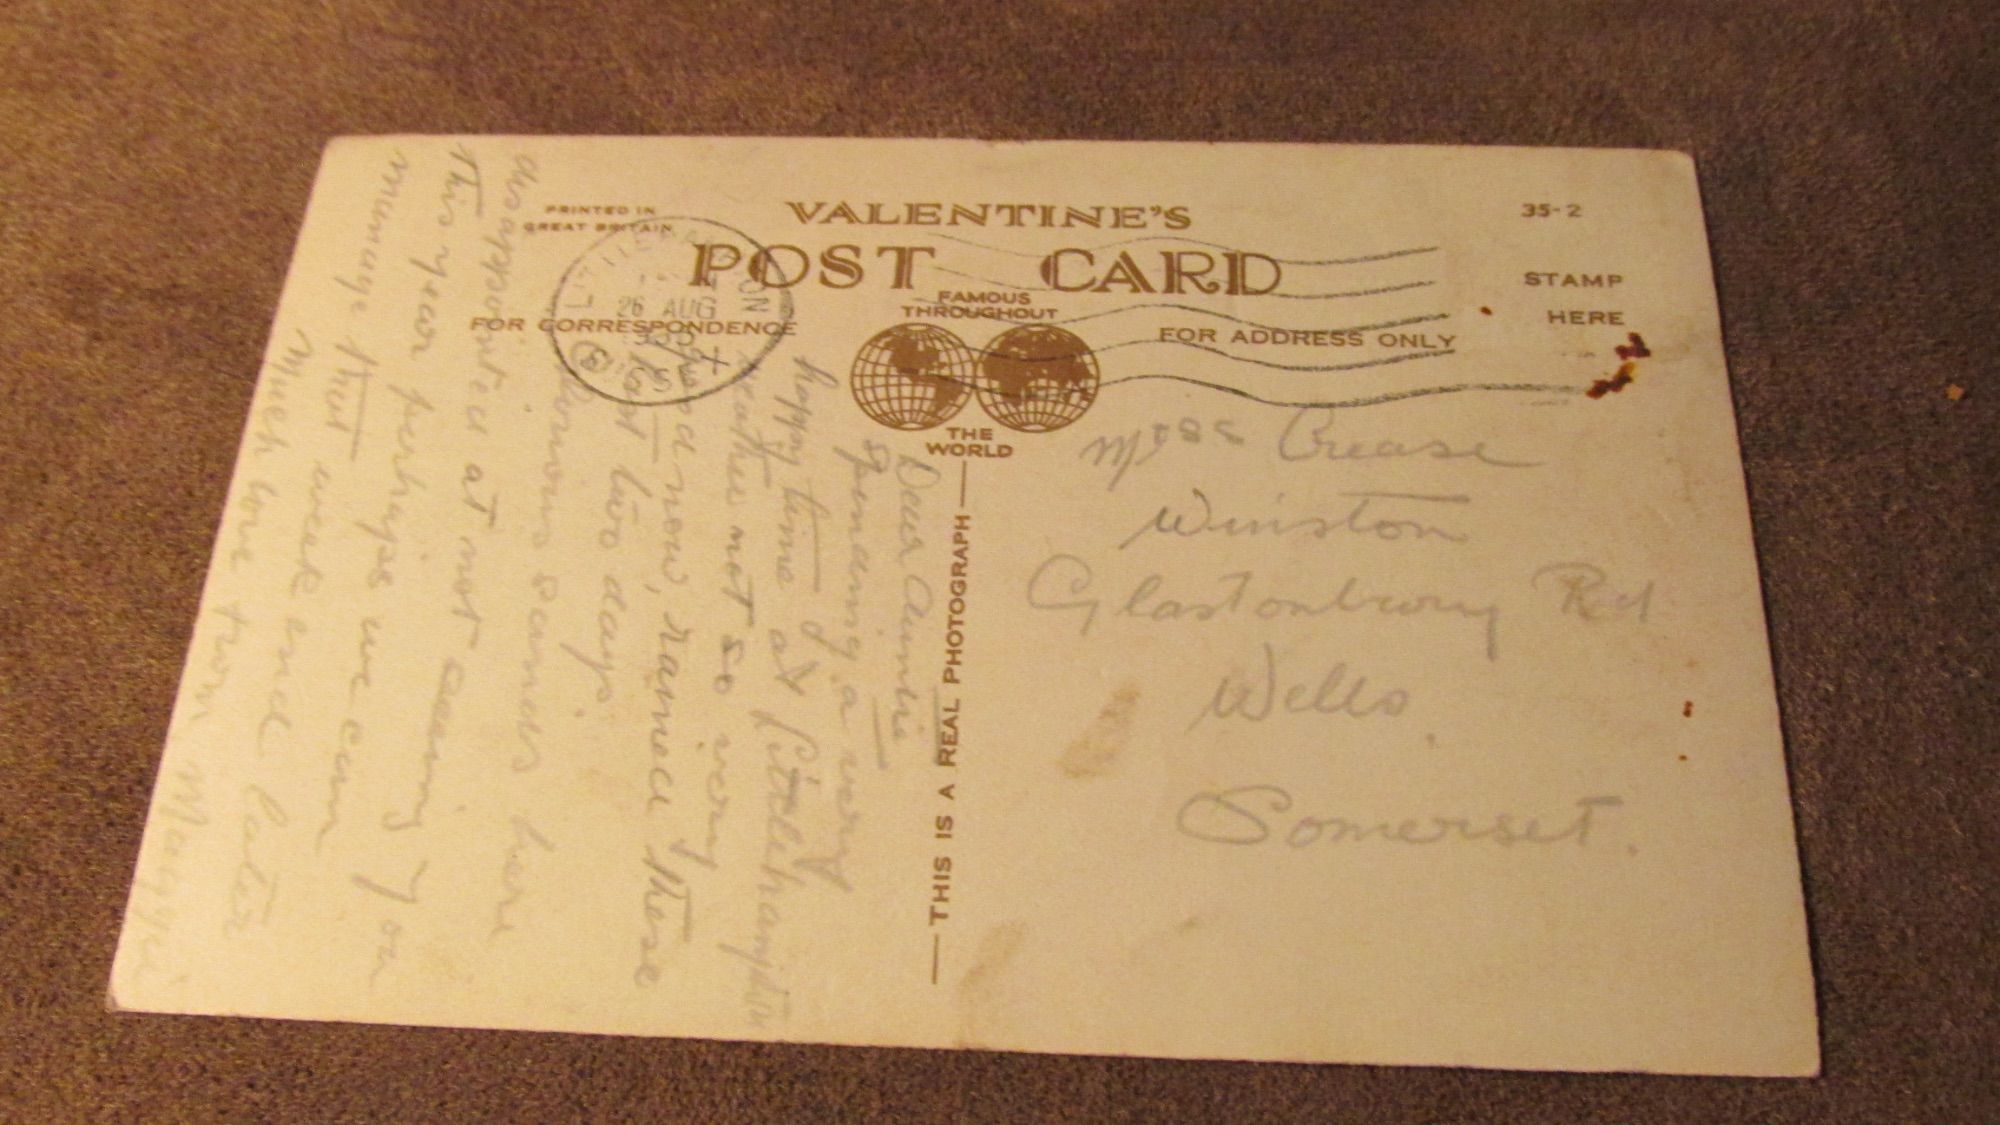 PRINTED IN
GREAT BRITAIN
VALENTINE'S
POST CARD
35-2
STAMP
HERE
FAMOUS
THROUGHOUT
THE
WORLD
FOR CORRESPONDENCE
FOR ADDRESS ONLY
26 AUG
SUSSEX
THIS IS A REAL PHOTOGRAPH
Crease
Winston
Glastonbury Rd
Wells
Somerset.
Dear Auntie
Spending a very
happy time at Littlehampton
weather not so very
good now, rained these
last two days.
Glorious sands here
disappointed at not seeing you
this year perhaps we can
manage that week end later
Much love from